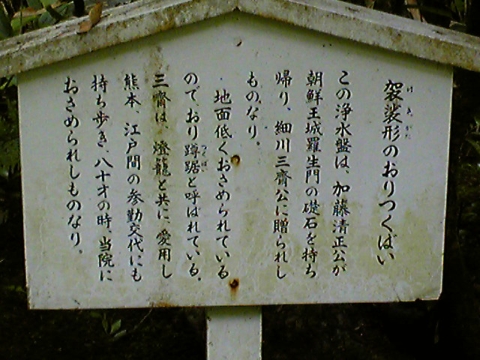 袈裟形のおりつくばい
け さ がた
この浄水盤は、加藤清正公が
朝鮮王城羅生門の礎石を持ち
帰り、細川三齋公に贈られし
ものなり。
地面低くおさめられている
ので、おり蹲踞と呼ばれている。
つくばい
三齋は、燈籠と共に、愛用し
熊本、江戸間の参勤交代にも
持ち歩き、八十才の時、当院に
おさめられしものなり。